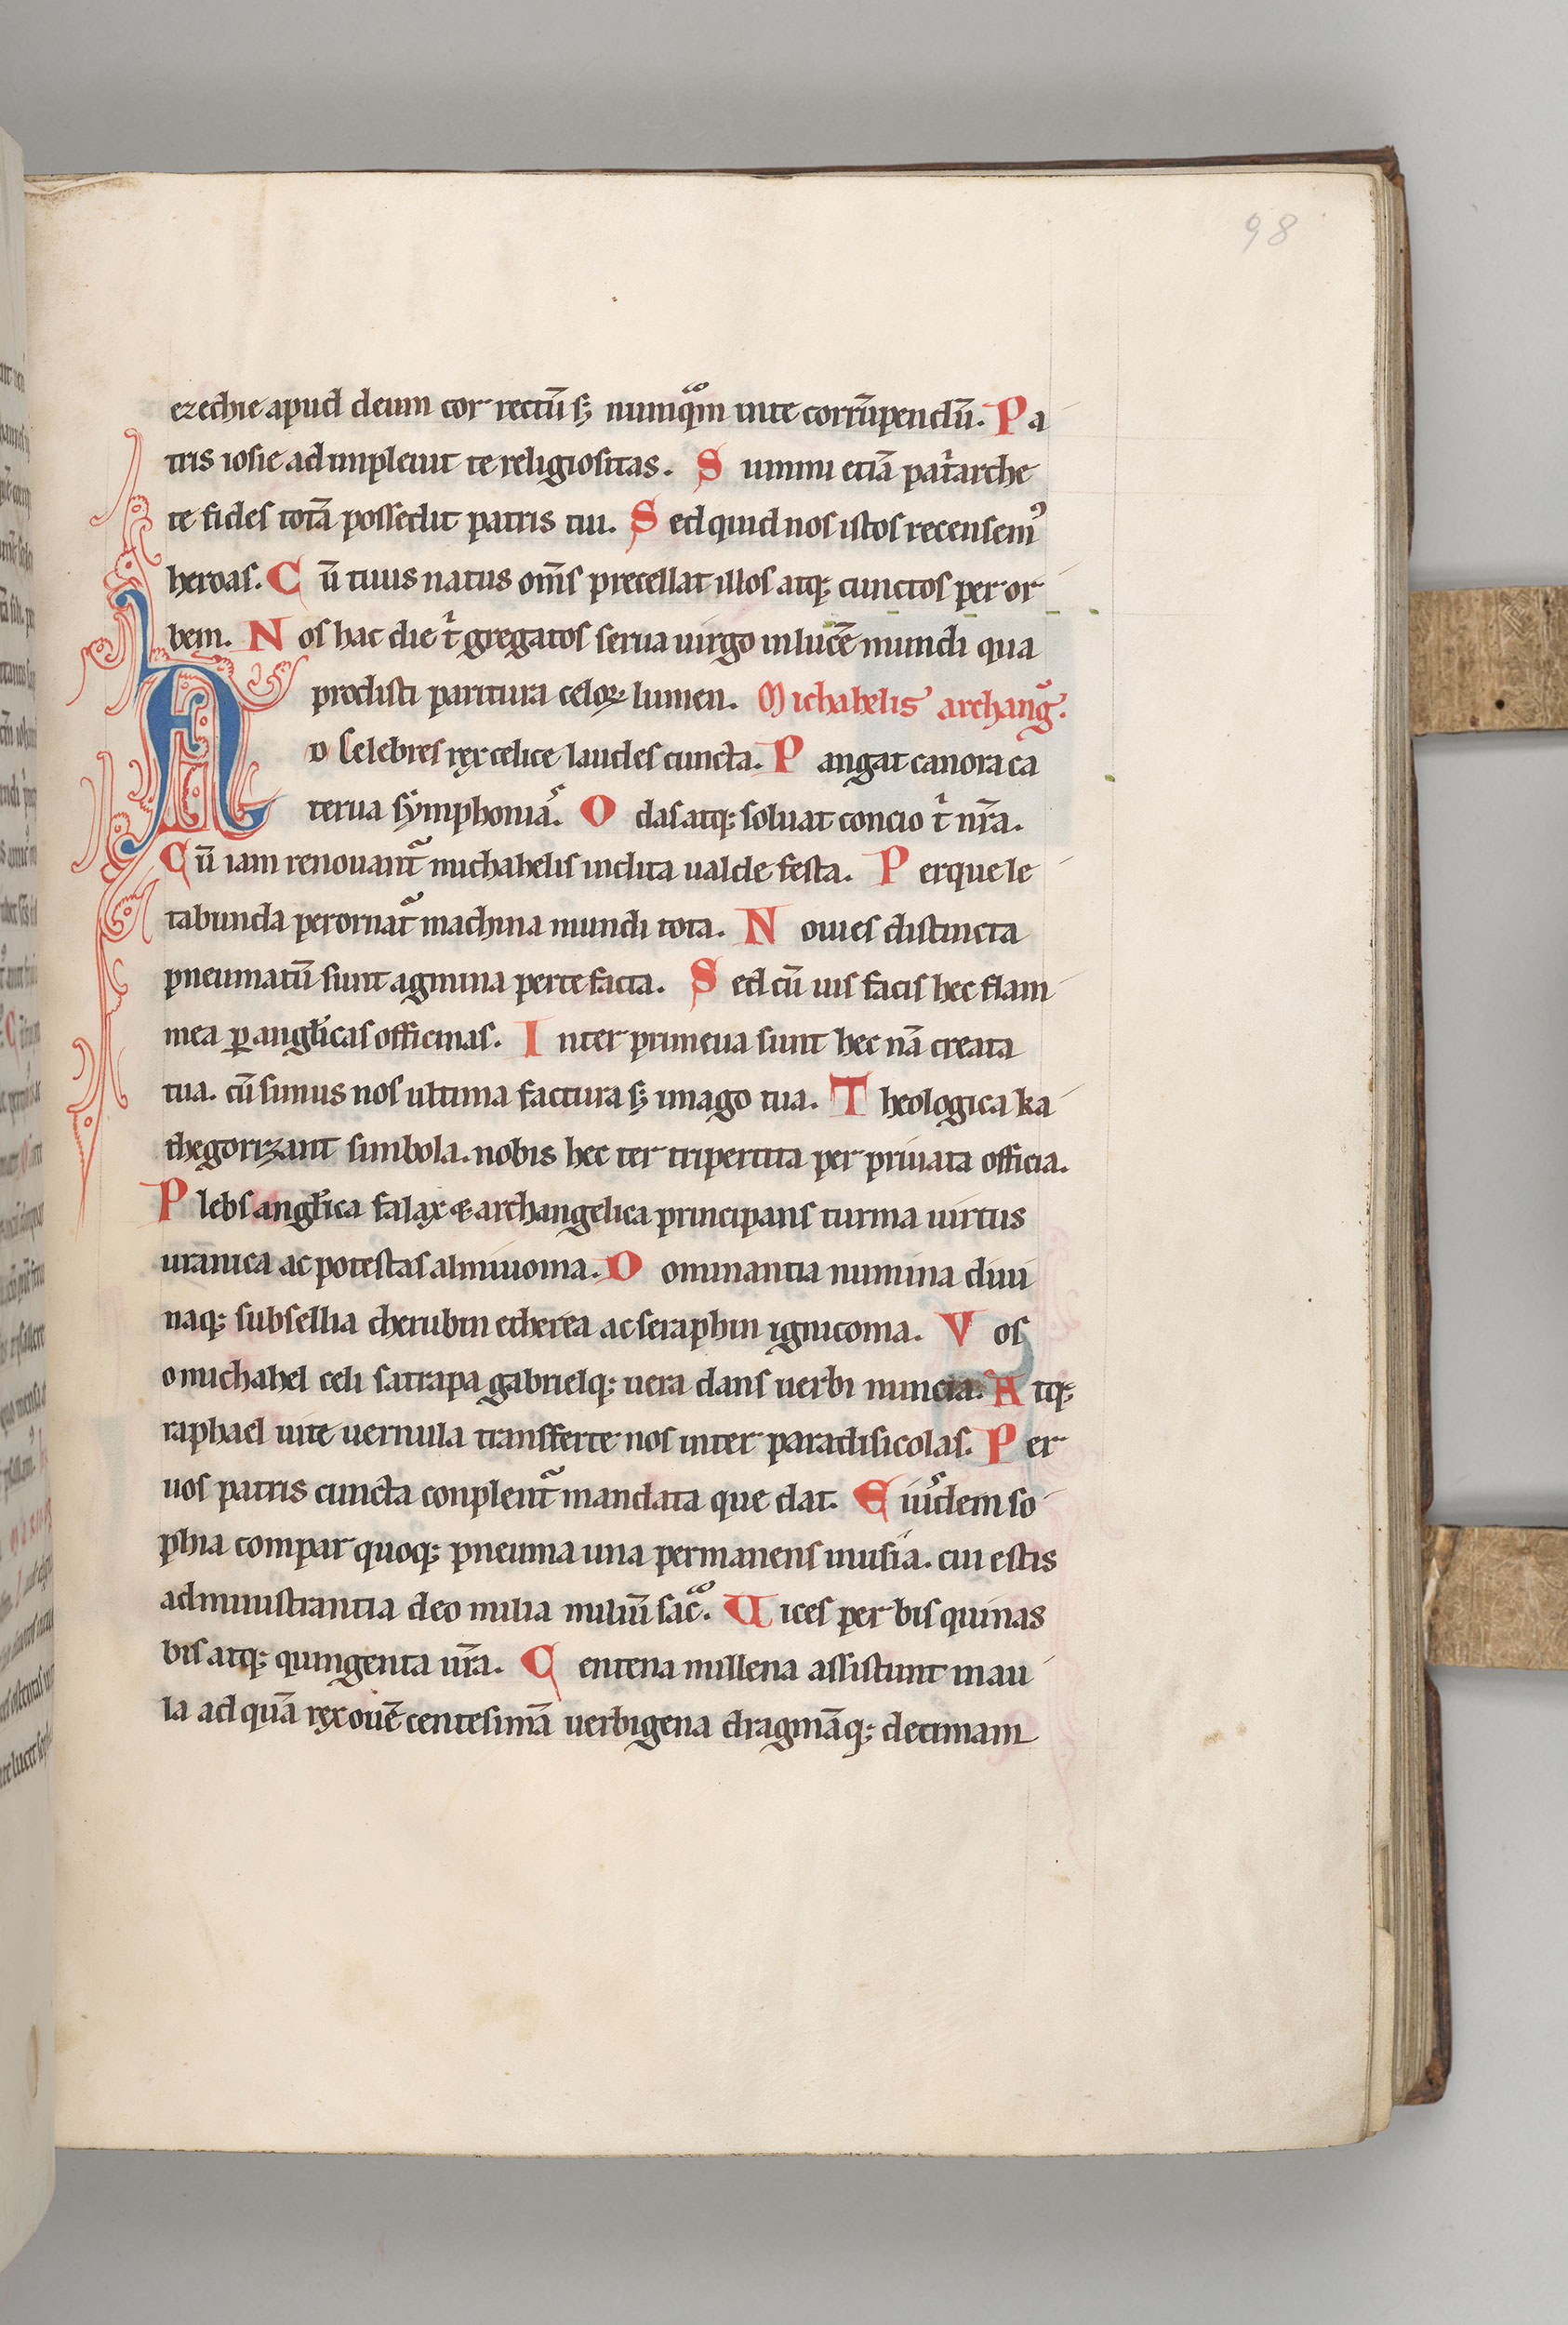 98
ezechie apud deum cor rectū sꝫ numqͣm inte corrūpendū. Pa
tris iosie adimpleuit te religiositas. Summi etiā patͥarche
te fides totā possedit patris tui. Sed quid nos istos recensemꝰ
heroas. Cū tuus natus om̄s precellat illos atqꝫ cunctos per or
bem. Nos hac die tͥ gregatos serua uirgo inlucē mundi qua
prodisti paritura celoꝝ lumen. Michahelis archang̃.
AD celebres rex celice laudes cuncta. Pangat canora ca
terua symphonias. Odas atqꝫ soluat concio tͥ nr̄a.
Cū iam renouant᷑ michahelis inclita ualde festa. Perque le
tabunda perornat᷑ machina mundi tota. Nouies distincta
pneumatū sunt agmina perte facta. Sed cū uis facis hec flam
mea ꝑ anglicas officinas. Inter primeua sunt hec nā creata
tua. cū simus nos ultima factura sꝫ imago tua. Theologica ka
thegorizant simbola. nobis hec ter tripertita per priuata officia.
Plebs anglica falax & archangelica principans turma uirtus
uranica ac potestas almiuoma. Dominantia numina diui
naqꝫ subsellia cherubin etherea ac seraphin ignicoma. Vos
o michahel celi satrapa gabrielqꝫ uera dans uerbi nuncia. Atqꝫ
raphael uite uernula transferte nos inter paradisicolas. Per
uos patris cuncta conplent᷑ mandata que dat. Eiusdem so
phia compar quoqꝫ pneuma una permanens inusia. cui estis
administrantia deo milia miliū sac̄. Uices per bis quinas
bis atqꝫ quingenta ur̄a. Centena millena assistunt in au
la ad quā rex ouē centesimā uerbigena dragmāqꝫ decimam